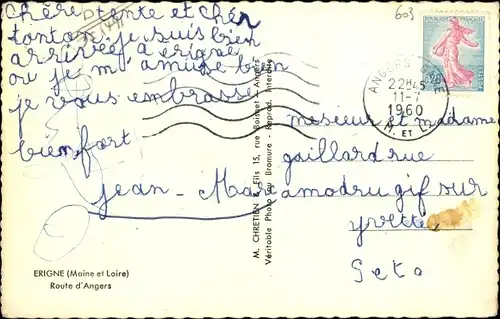 chère tante et chér
tonton je suis bien
arrivée a erigne
ou je m'amuse bien
je vous embrasse
bien fort
jean-Marie
603
RÉPUBLIQUE FRANÇAISE
POSTES
ANGERS GARE
22H45
11-7
1960
M. ET L.
mesieur et madame
gaillard rue
amodru gif sur
yvette
Seto
M. CHRETIEN & Fils 15, rue Boisnet - Angers
Véritable Photo au Bromure - Reprod. Interdite
ERIGNE (Maine et Loire)
Route d'Angers